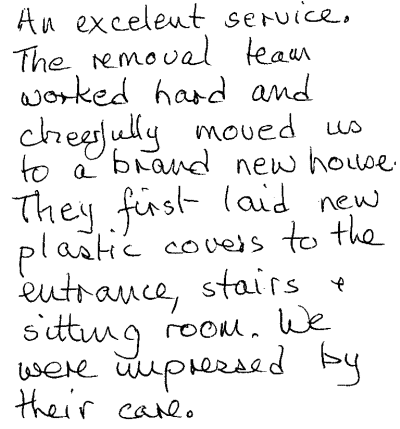 An excelent service.
The removal team
worked hard and
cheerfully moved us
to a brand new house.
They first laid new
plastic covers to the
entrance, stairs +
sitting room. We
were impressed by
their care.